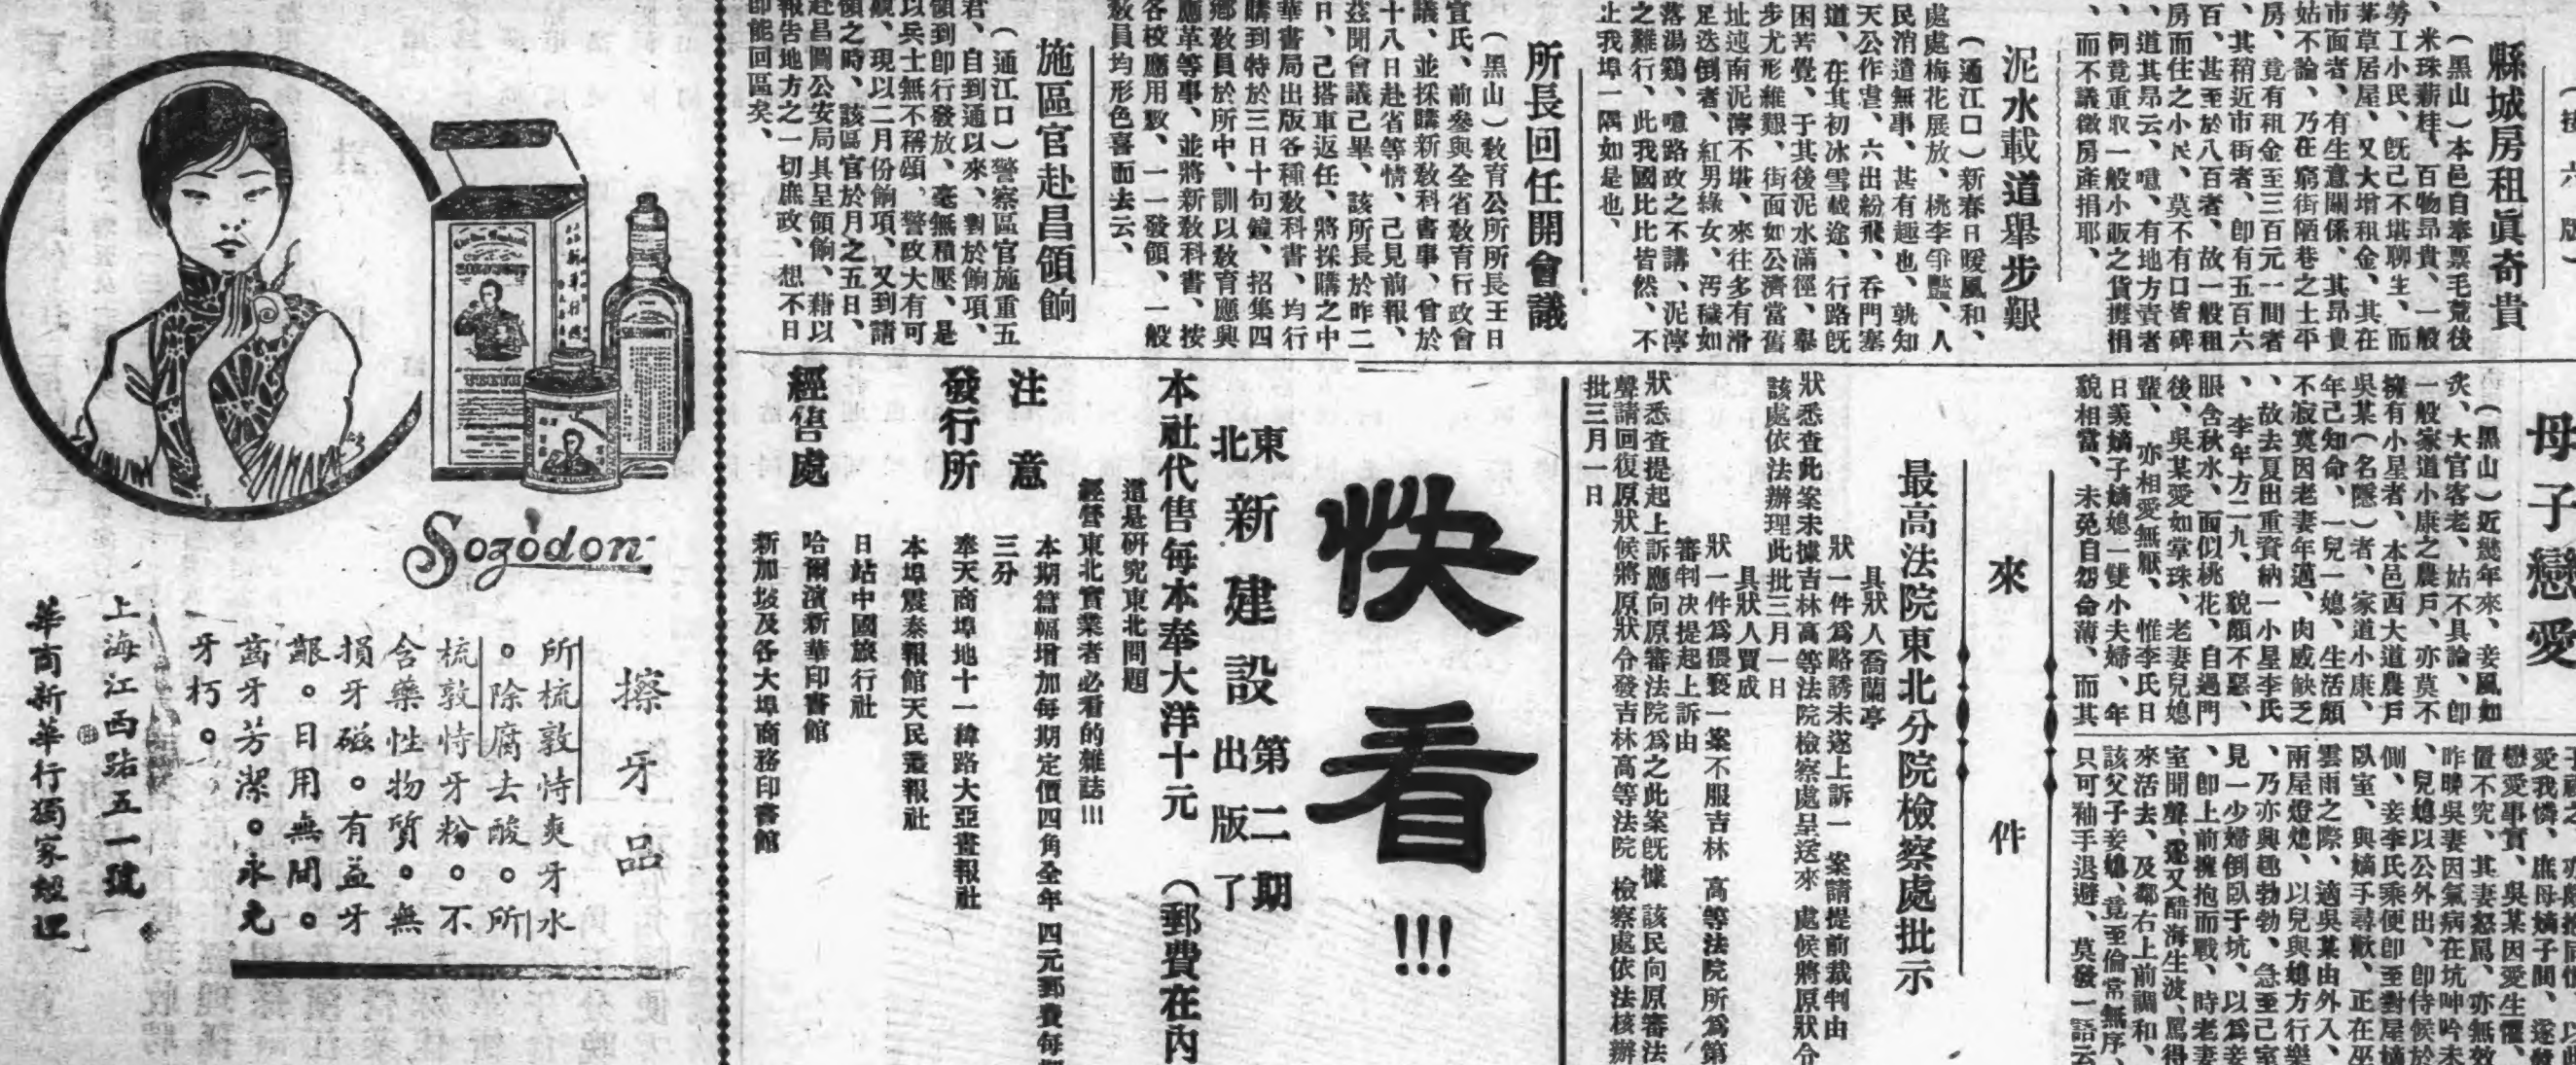 縣城房租眞奇貴
（黑山）本邑自奉票毛荒後
、米珠薪桂、百物昂貴、一般
勞工小民、旣己不堪聊生、而
茅草居屋、又大增租金、其在
市面者、有生意關係、其昂貴
姑不論、乃在窮街陋巷之士平
房、竟有租金至三百元一間者
、其稍近市街者、卽有五百六
百、甚至於八百者、故一般租
房而住之小民、莫不有口皆碑
、道其昂云、噫、有地方責者
、何竟重取一般小販之貨攤捐
、而不議徵房產捐耶、
泥水載道舉步艱
（通江口）新春日暖風和、
處處梅花展放、桃李爭豔、人
民消遣無事、甚有趣也、孰知
天公作虐、六出紛飛、吞門塞
道、在其初冰雪載途、行路旣
困苦覺、于其後泥水滿徑、擧
步尤形維艱、街面如公濟當舊
址迤南泥濘不堪、來往多有滑
足迭倒者、紅男綠女、污穢如
落湯鷄、噫路政之不講、泥濘
之難行、此我國比比皆然、不
止我埠一隅如是也、
所長回任開會議
（黑山）敎育公所所長王日
宣氏、前參與全省敎育行政會
議、並採購新敎科書事、曾於
十八日赴省等情、己見前報、
茲聞會議己畢、該所長於昨二
日、己搭車返任、將採購之中
華書局出版各種敎科書、均行
購到特於三日十句鐘、招集四
鄉敎員於所中、訓以敎育應興
應革等事、並將新敎科書、按
各校應用數、一一發領、一般
敎員均形色喜而去云、
施區官赴昌領餉
（通江口）警察區官施重五
君、自到通以來、對於餉項、
領到卽行發放、毫無積壓、是
以兵士無不稱頌、警政大有可
觀、現以二月份餉項、又到請
領之時、該區官於月之五日、
赴昌圖公安局具呈領餉、藉以
報告地方之一切庶政、想不日
卽能回區矣、
母子戀愛
（黑山）近幾年來、妾風如
炙、大官客老、姑不具論、卽
一般家道小康之農戶、亦莫不
擁有小星者、本邑西大道農戶
吳某（名隱）者、家道小康、
年己知命、一兒一媳、生活頗
不寂寞因老妻年邁、肉慼缺乏
、故去夏出重資納一小星李氏
、李年方二九、貌頗不惡、
眼含秋水、面似桃花、自過門
後、吳某愛如掌珠、老妻兒媳
輩、亦相愛無厭、惟李氏日
日羨嫡子嫡媳一雙小夫婦、年
貌相當、未免自怨命薄、而其
愛我憐、庶母嫡子間、遂
戀愛事實、吳某因愛生懼、
置不究、其妻怒罵、亦無效
昨晚吳妻因氣病在坑呻吟未
、兒媳以公外出、卽侍候於
側、妾李氏乘便卽至對屋嫡
臥室、與嫡手尋歡、正在巫
雲雨之際、適吳某由外入、
兩屋燈熄、以兒與媳方行樂
、乃亦興趣勃勃、急至己室
見一少婦倒臥于坑、以爲妾
、卽上前擁抱而戰、時老妻
室聞聲、遂又醋海生波、罵得
來活去、及鄰右上前調和、
該父子妾媳、竟至倫常無序、
只可袖手退避、莫發一語云
來件
最高法院東北分院檢察處批示
具狀人喬蘭亭
狀一件爲略誘未遂上訴一案請提前裁判由
狀悉查此案未據吉林高等法院檢察處呈送來處候將原狀令
該處依法辦理此批三月一日
具狀人賈成
狀一件爲猥褻一案不服吉林高等法院所爲第
審判决提起上訴由
狀悉查提起上訴應向原審法院爲之此案旣據該民向原審法
聲請回復原狀候將原狀令發吉林高等法院檢察處依法核辦
批三月一日
快看!!!
東北新建設第二期出版了
本社代售每本奉大洋十元（郵費在內
這是硏究東北問題
經營東北實業者必看的雜誌!!!
注意
本期篇幅增加每期定價四角全年四元郵費每
三分
發行所
奉天商埠地十一緯路大亞畫報社
本埠震泰報館天民叢報社
經售處
日站中國旅行社
哈爾濱新華印書館
新加坡及各大埠商務印書館
SOZODONT
TEETH
Sozodont
擦牙品
所梳敦恃爽牙水
。除腐去酸。所
梳敦恃牙粉。不
含藥性物質。無
損牙磁。有益牙
齦。日用無間。
齒牙芳潔。永免
牙朽。
上海江西路五一號
華商新華行獨家經理